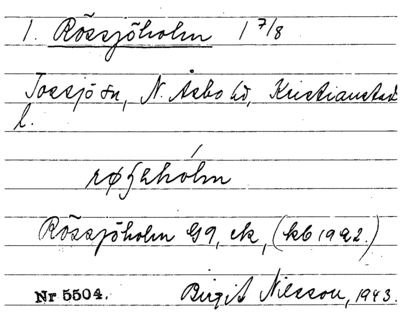 1. Rössjöholm 1 7/8
Tossjö sn, N. Åsbo hd, Kristianstads
l.
Rössjöholm G9, ek, (kb 1922.)
Nr 5504. Birgit Nilsson, 1943.